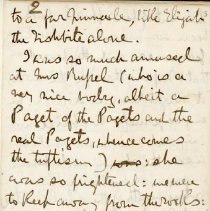 2
to a far pinnacle, like Elijah
the Tishbite alone.
I was so much amused
at Mrs Rupel (who is a
very nice body, albeit a
Paget of the Pagets and the
real Pagets, whence comes
the tuftism) she
was so frightened: 
to keep away from the wells: